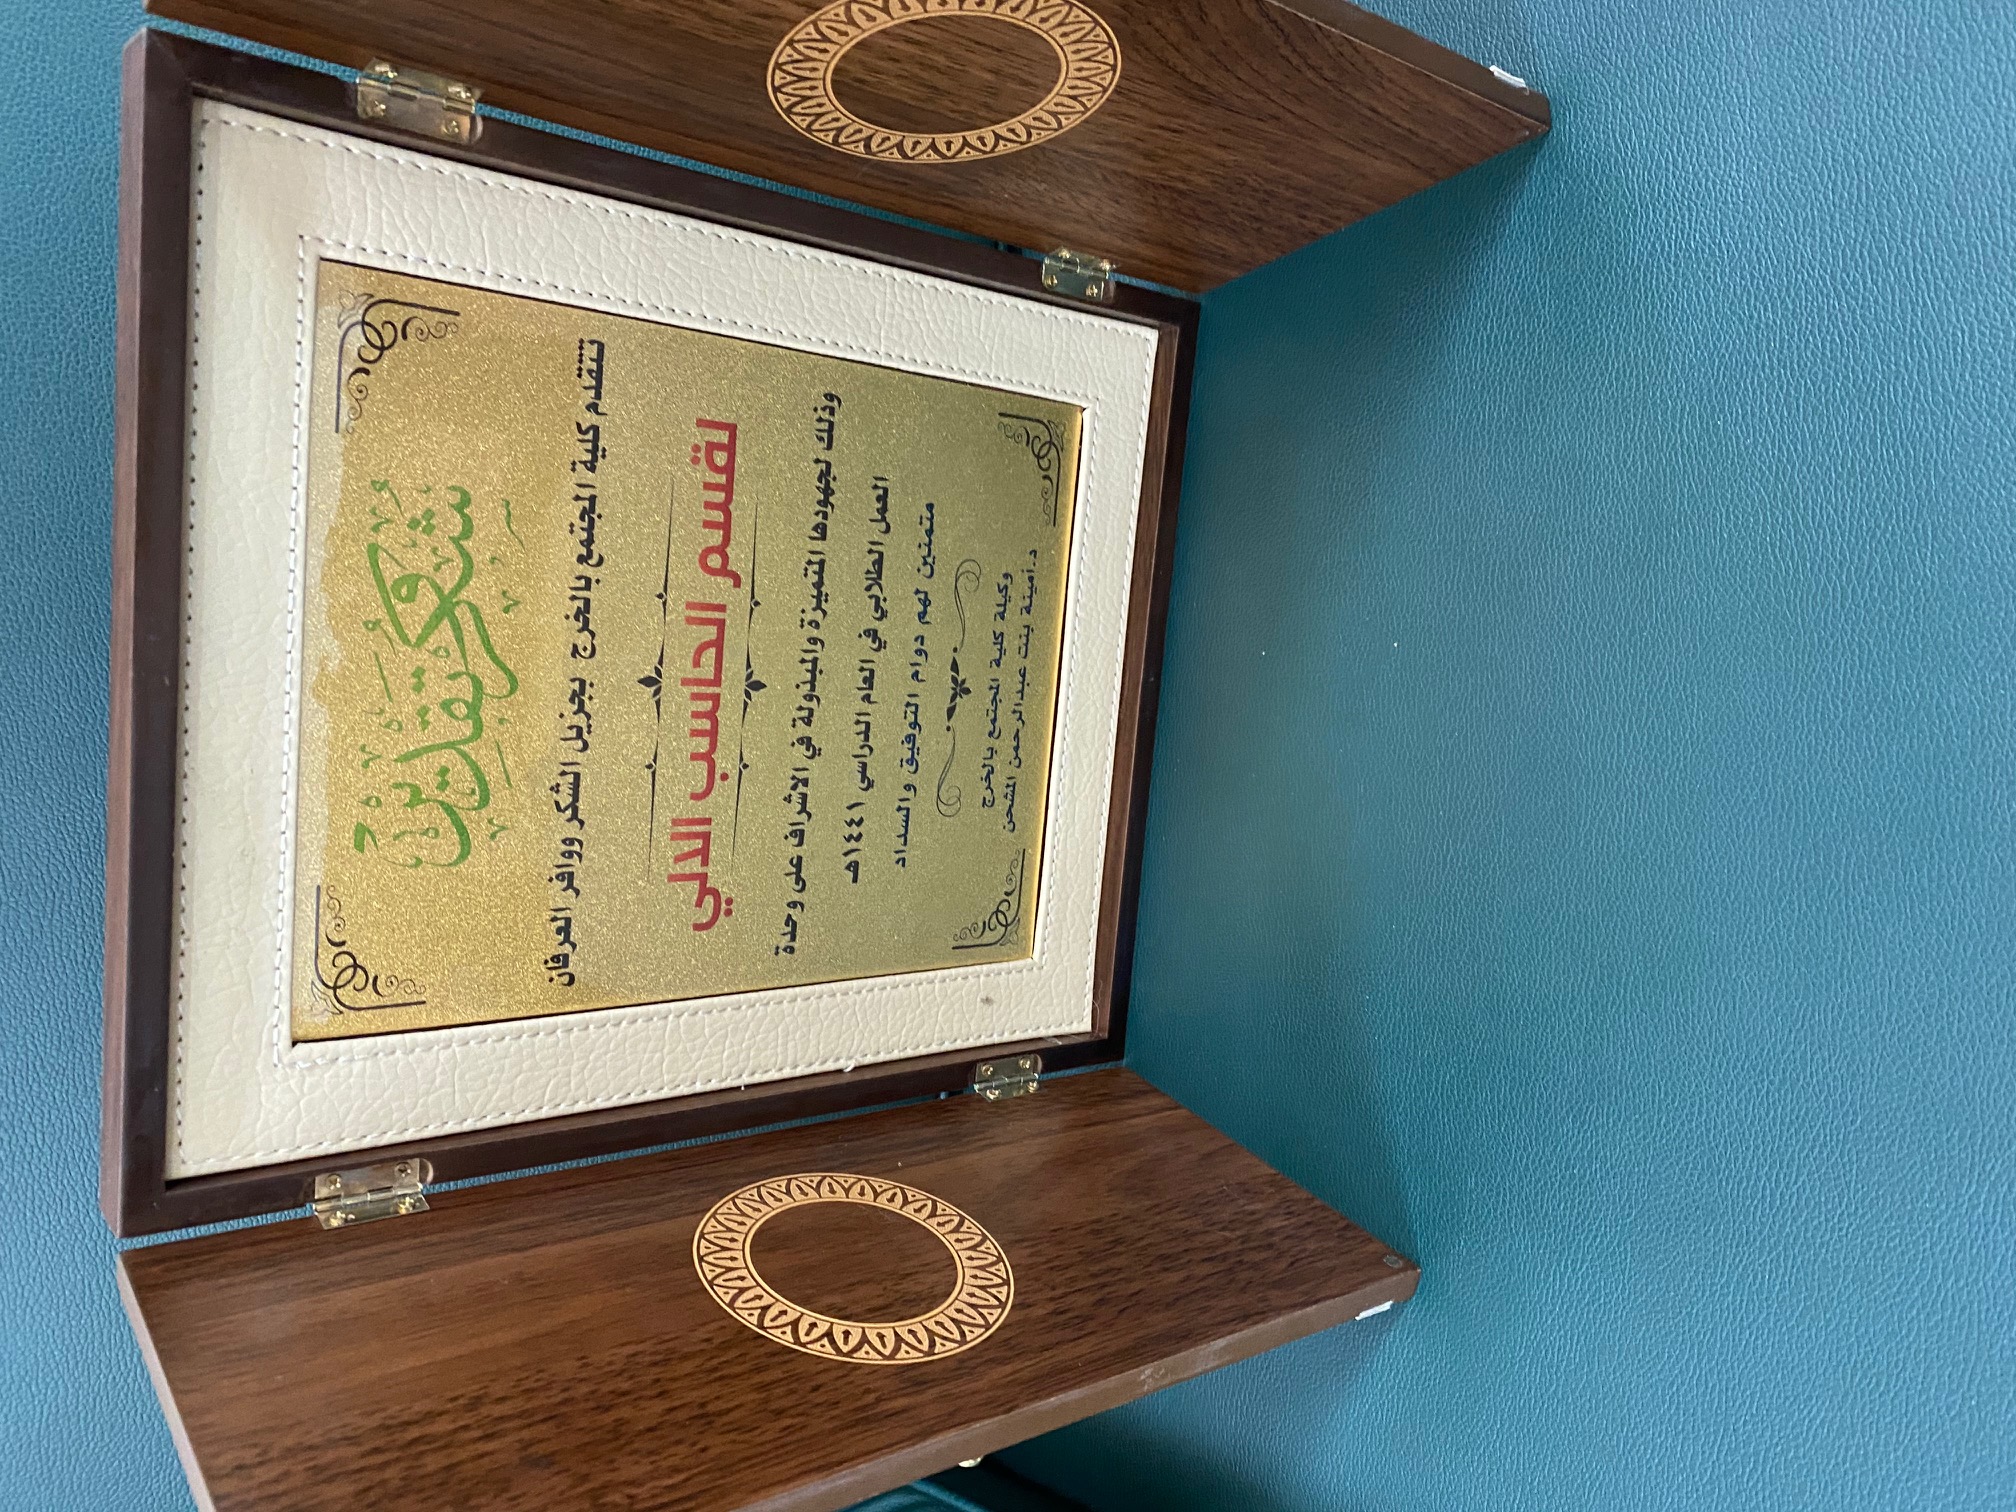 شكر وتقدير
تتقدم كلية المجتمع بالخرج بجزيل الشكر ووافر العرفان
لقسم الحاسب الالي
وذلك لجهودها المتميزة والمبذولة في الاشراف على وحدة
العمل الطلابي في العام الدراسي ١٤٤١هـ
متمنين لهم دوام التوفيق والسداد
وكيلة كلية المجتمع بالخرج
د.أمينة بنت عبدالرحمن المشحن